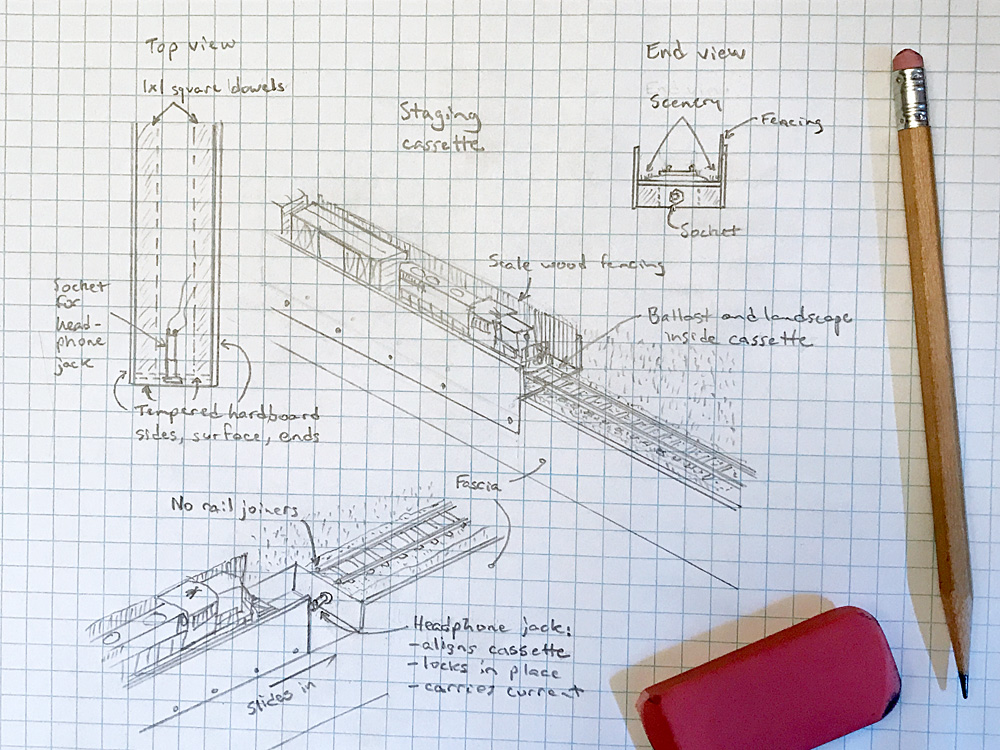 Top view
1x1 square dowels
Staging
cassette
End view
Scenery
Fencing
Socket
Socket
for
head-
phone
jack
Scale wood fencing
Ballast and landscape
inside cassette
Tempered hardboard
sides, surface, ends
Fascia
No rail joiners
Headphone jack:
-aligns cassette
-locks in place
-carries current
Slides in